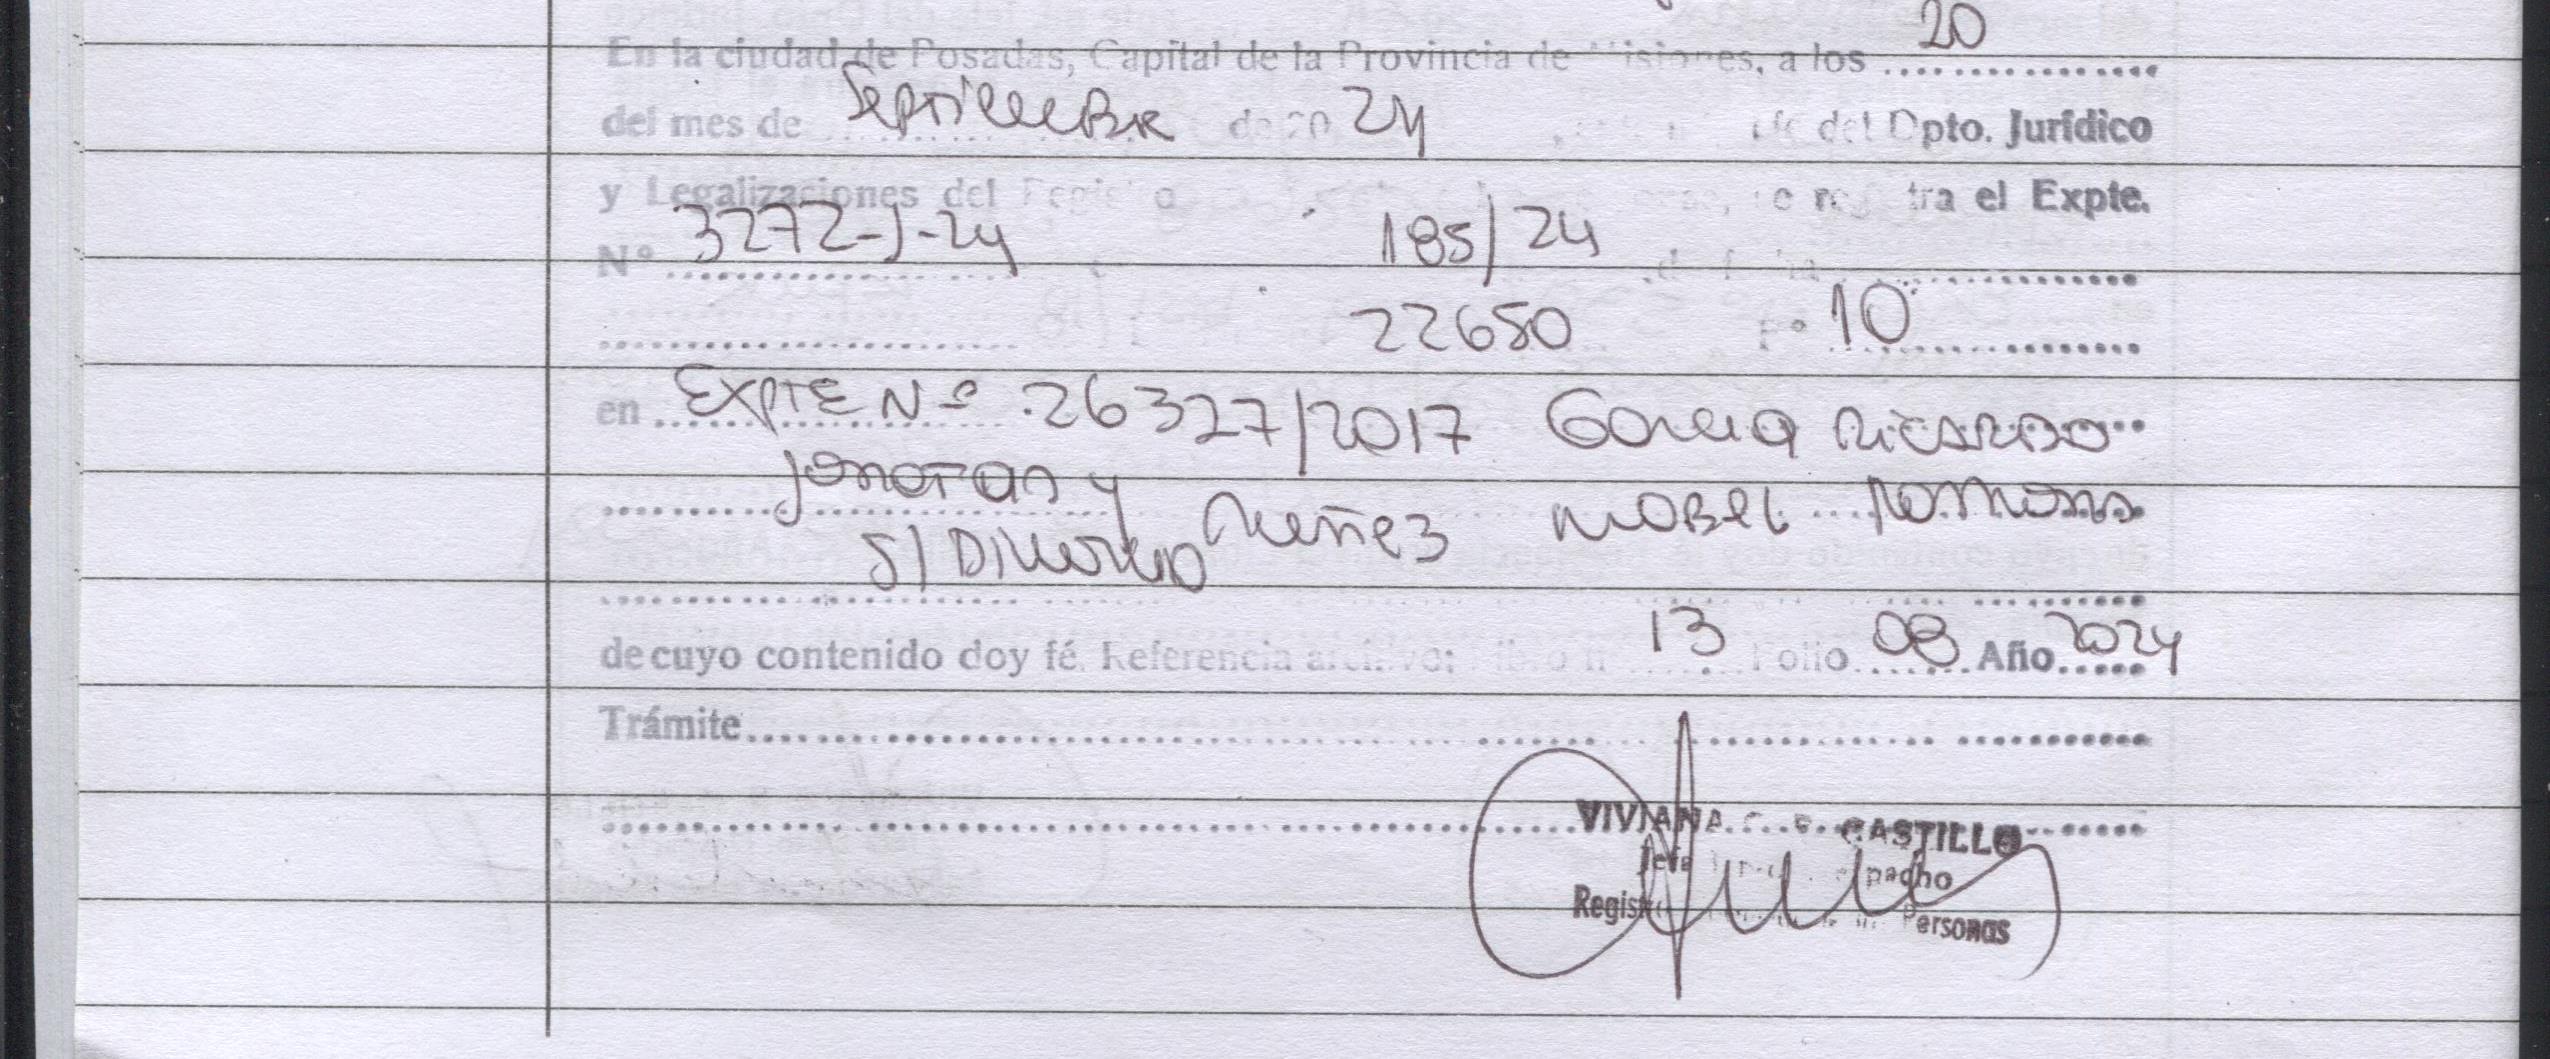 20
En la ciudad de Posadas, Capital de la Provincia de Misiones, a los
del mes de Septiembre de 20 24 del Dpto. Jurídico
y Legalizaciones del Registro registra el Expte.
Nº 3272-J-24 185/24
22650 Fº 10
en EXPTE Nº 26327/2017 Garcia Ricardo
Jonatan y Nuñez Mabel Ramona
S/ Divorcio
de cuyo contenido doy fé. Referencia archivo: Libro nº 13 Folio 08 Año 2024
Trámite
VIVIANA CASTILLO
Jefa
Personas